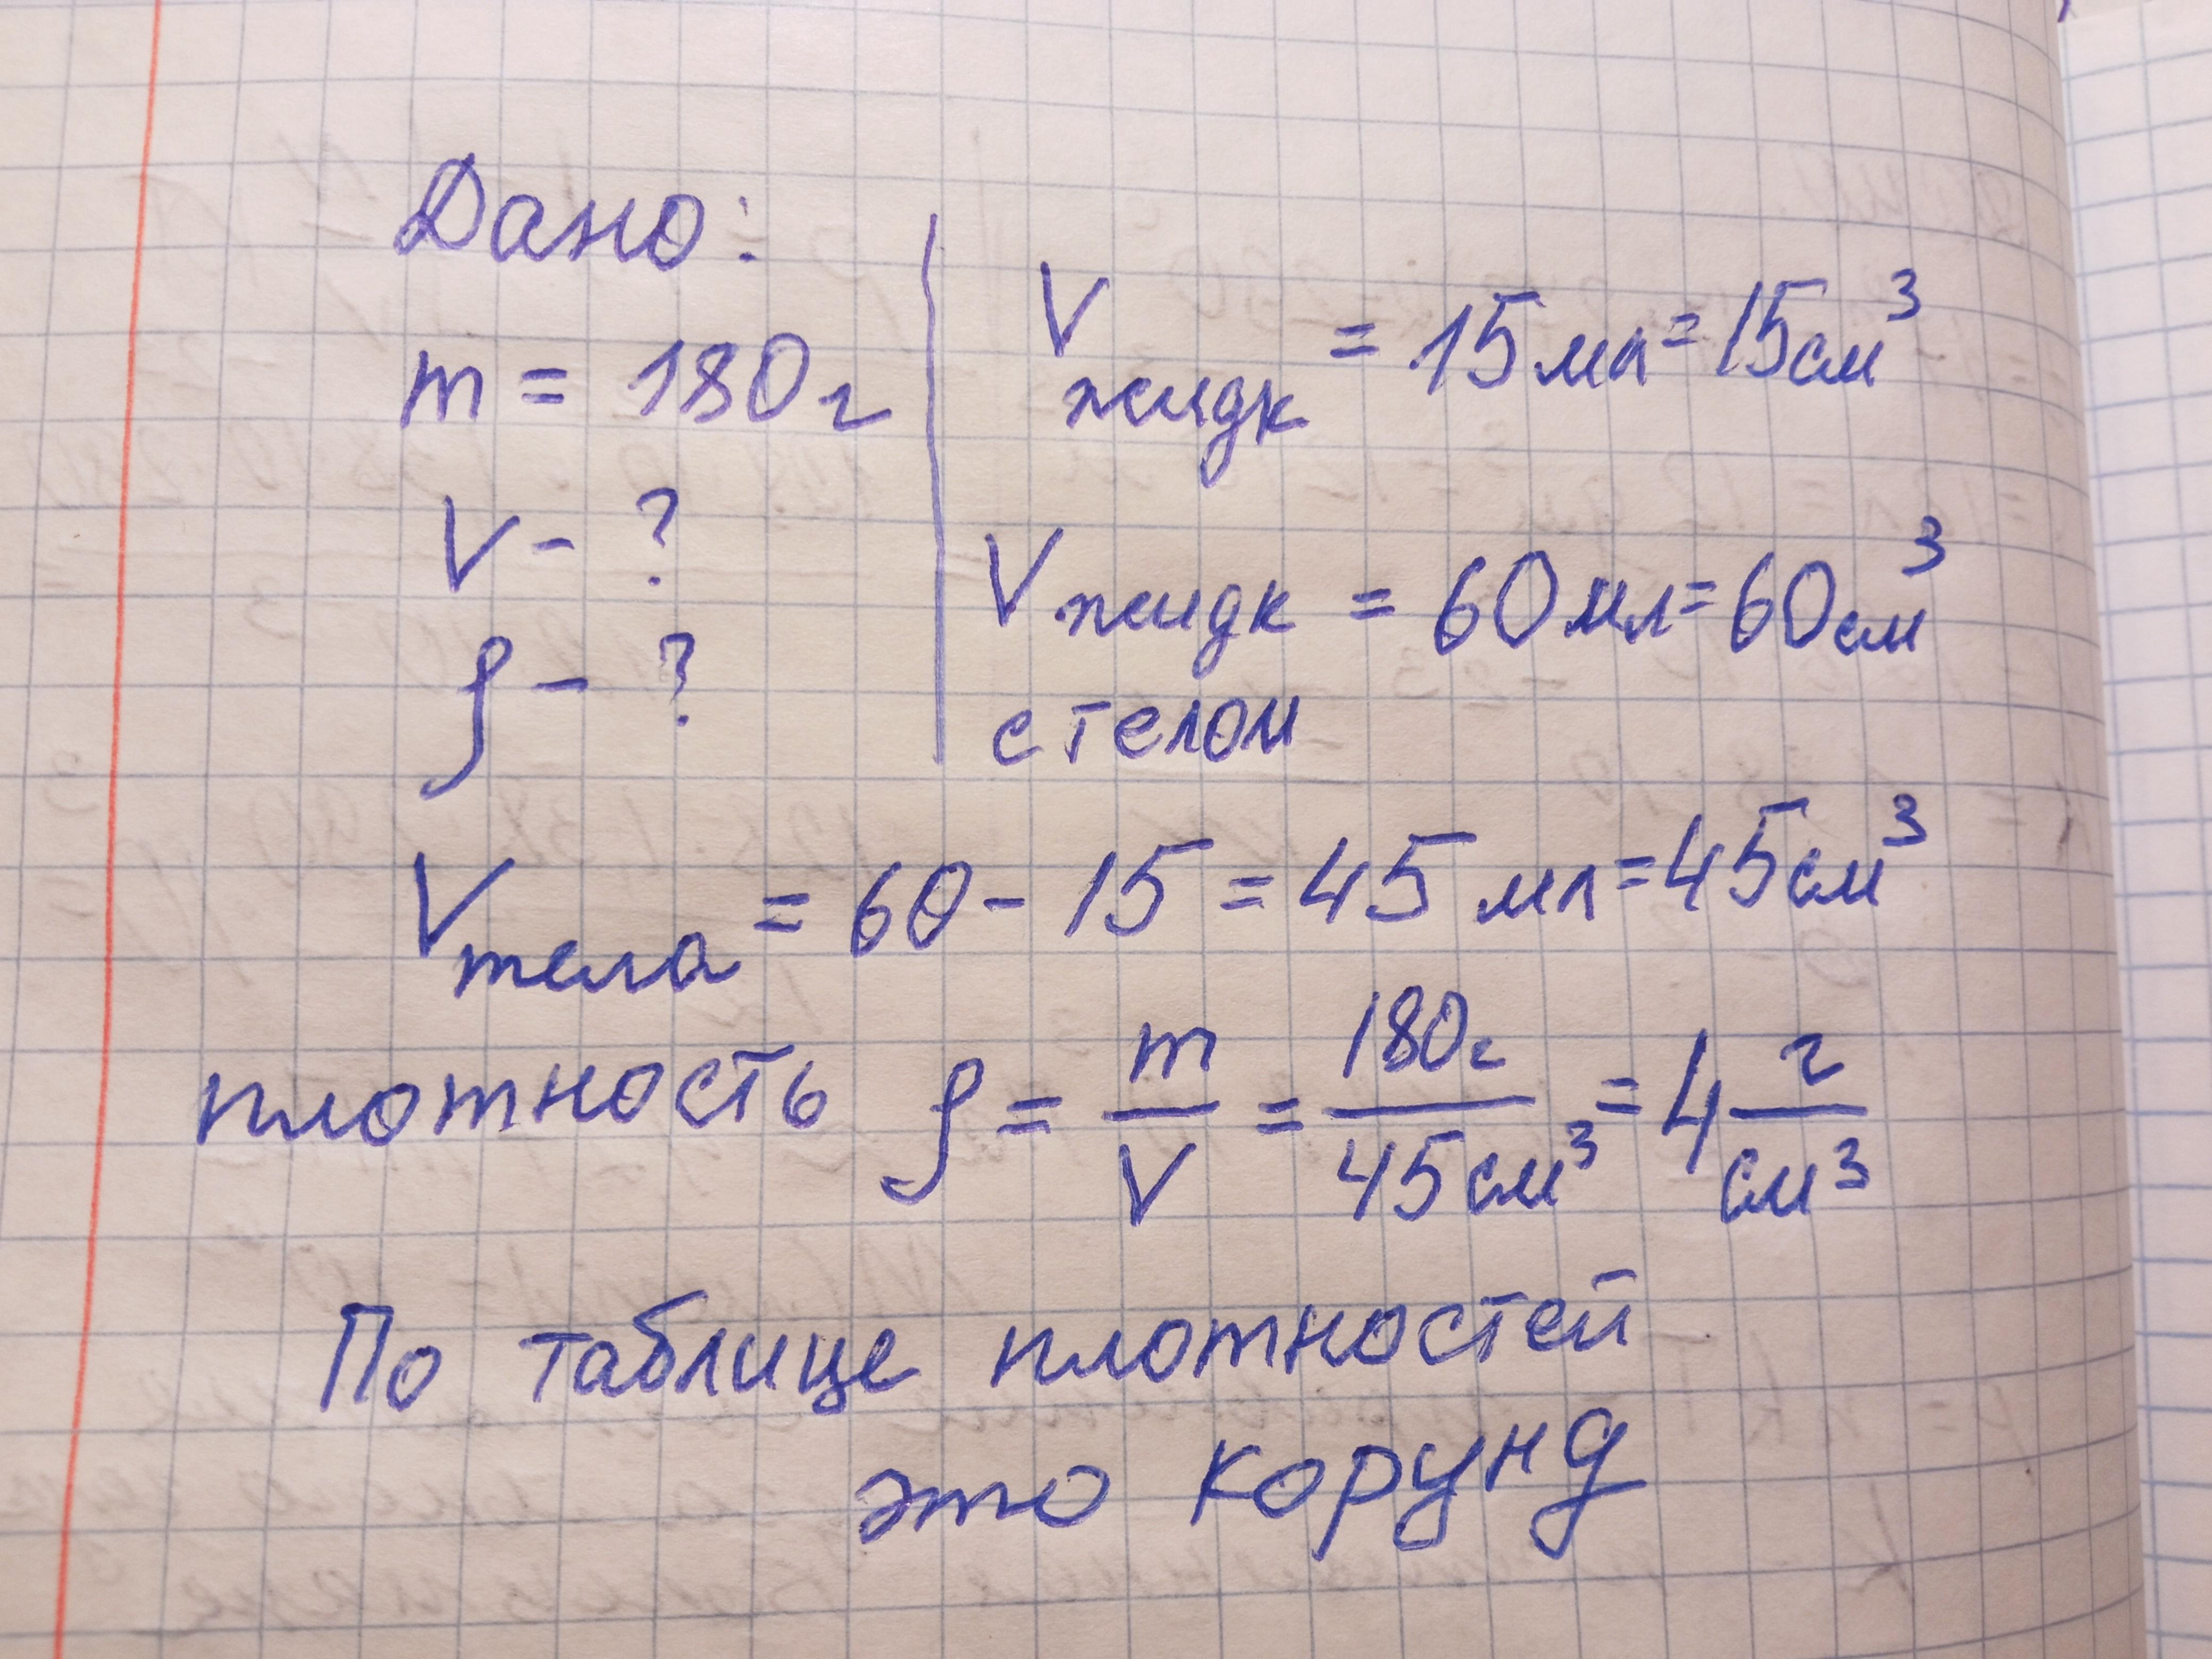 Дано:
m = 180г
V - ?
ρ - ?
V жидк = 15мл = 15см³
V жидк = 60мл = 60см³
с телом
V тела = 60 - 15 = 45 мл = 45см³
плотность ρ = m/V = 180г/45см³ = 4 г/см³
По таблице плотностей
это корунд